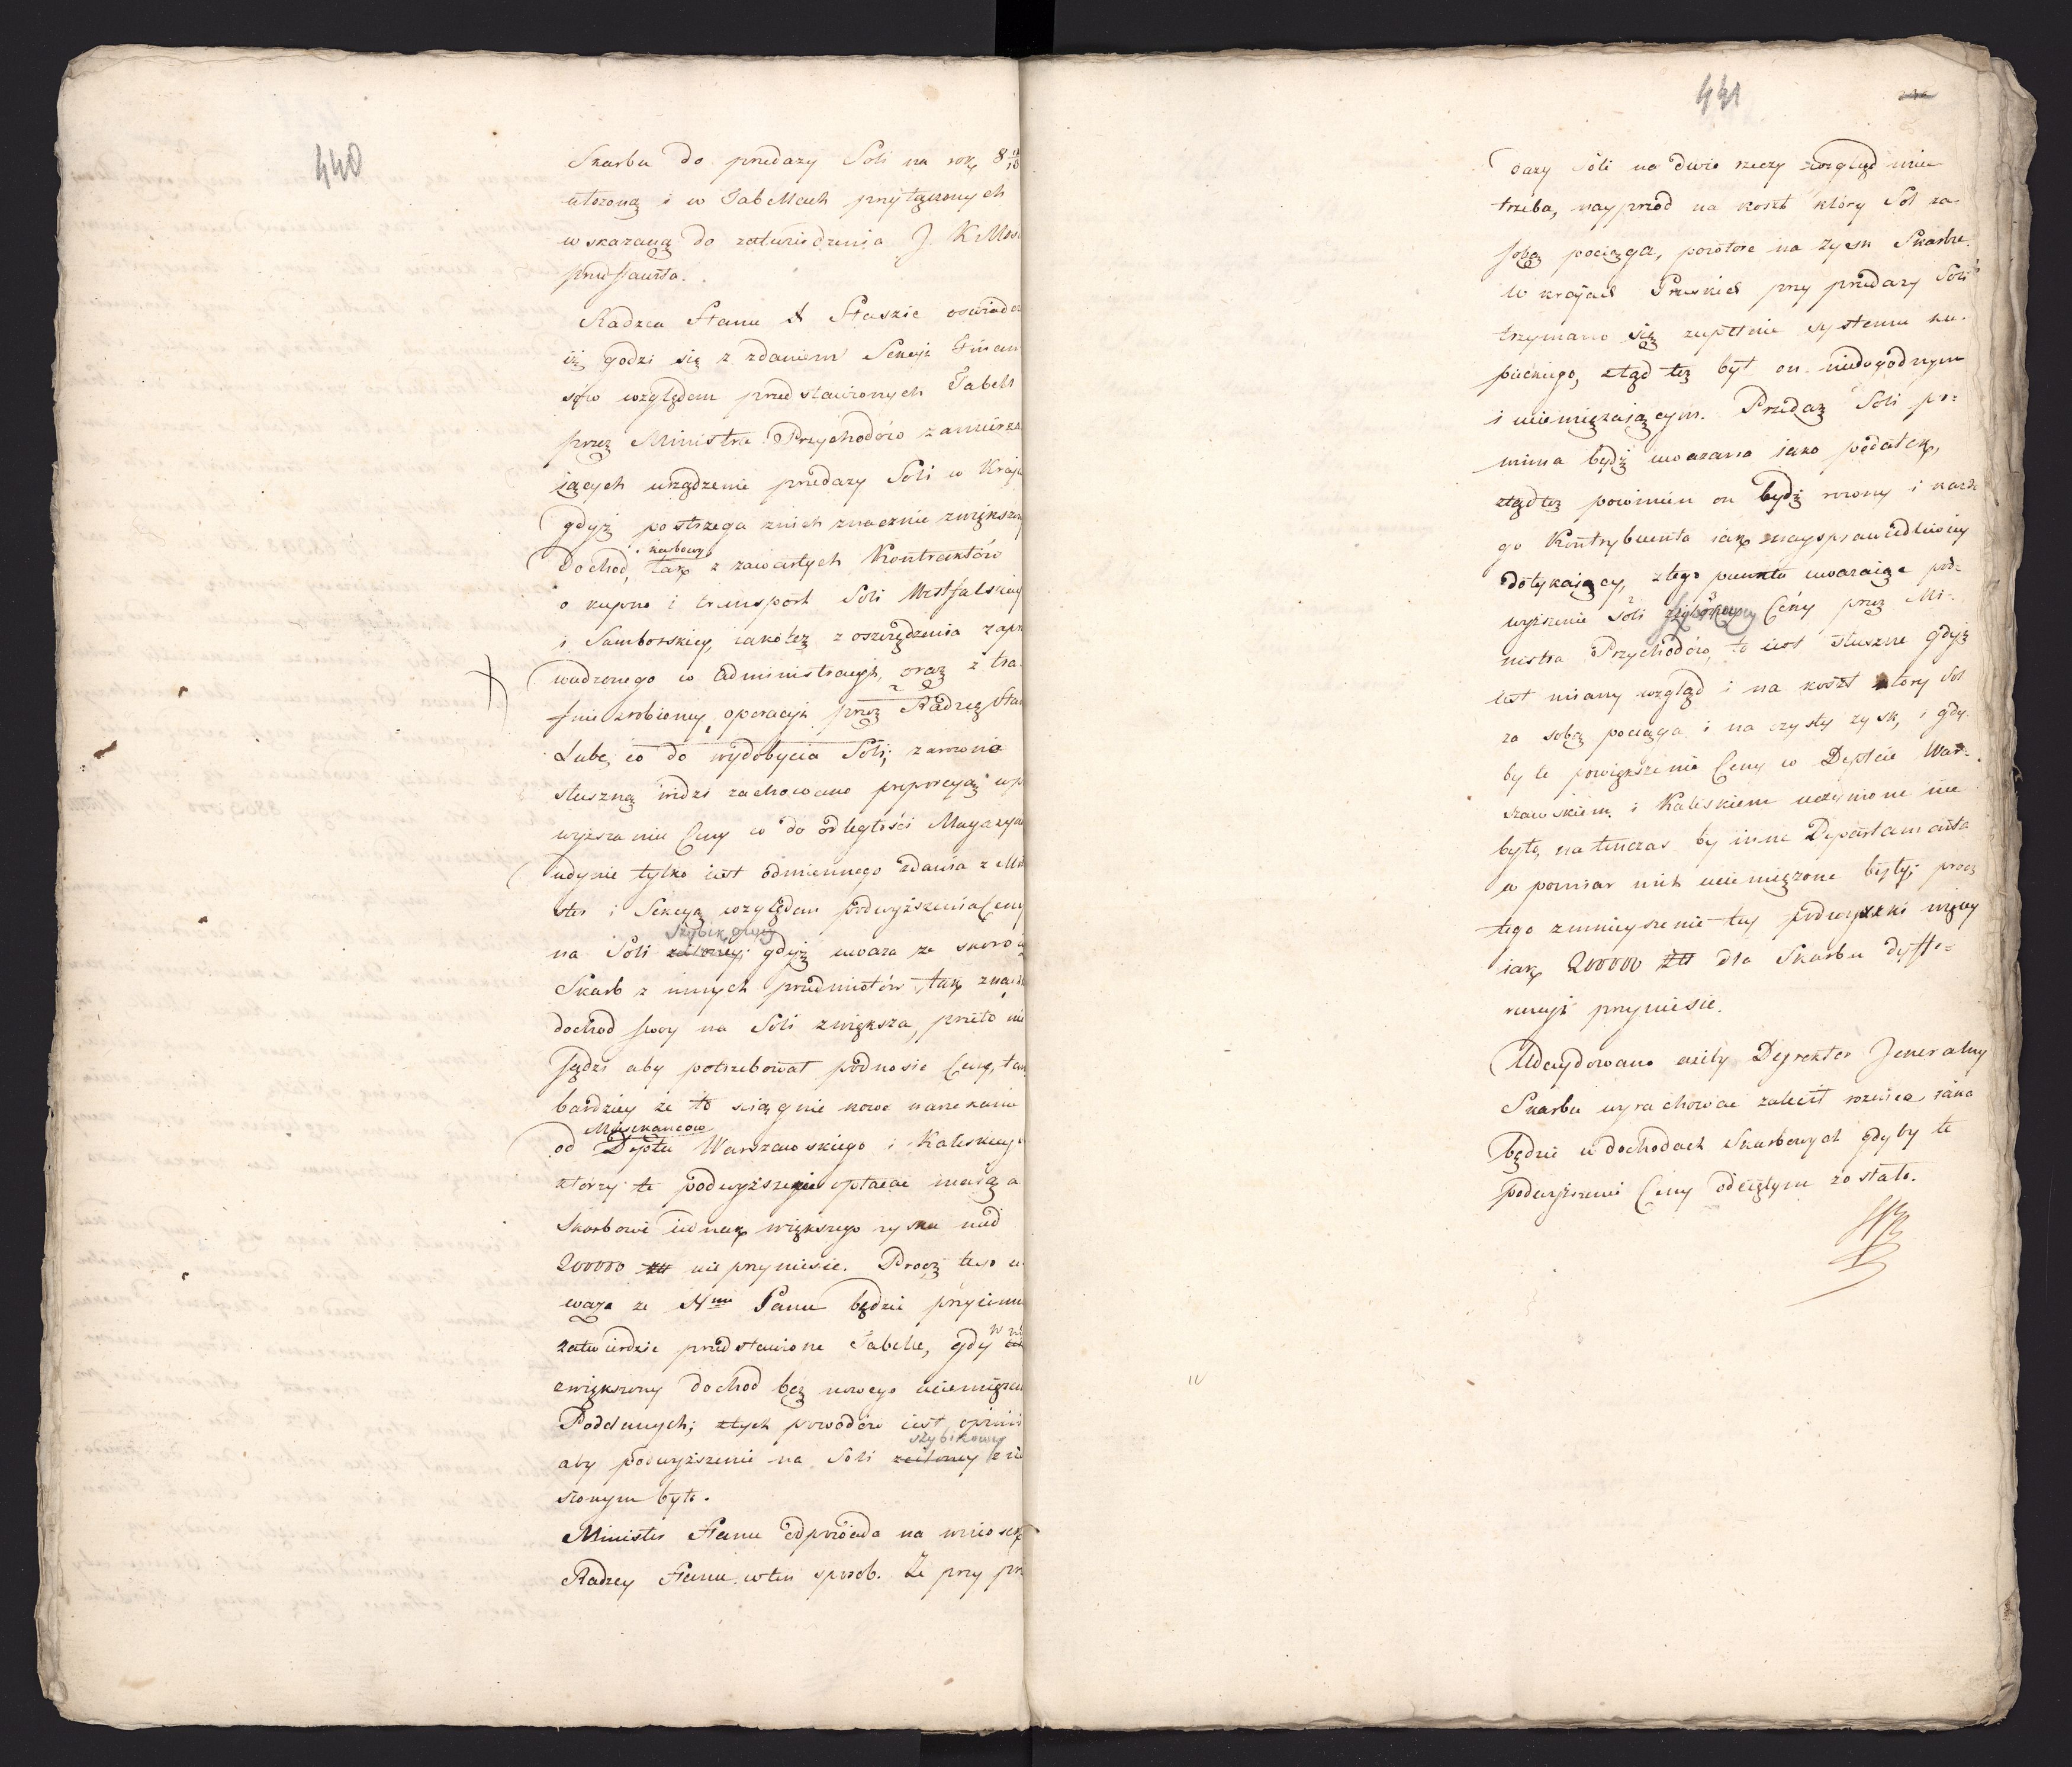 440
Skarbu do przedazy Soli na rok 8
ułozoną i w Tabellach przyłączonych
wskazaną do zatwierdzenia J. K Mos
przedstawia.
Radzca Stanu X Staszic oswiadcz
iż godzi się z zdaniem Sekcyi Finan
sów względem przedstawionych Tabell
przez Ministra Przychodów zamierza
iących urządzenie przedazy Soli w Kraju
gdyż postrzega znich znacznie zwiększony
skarbowy
Dochod, tak z zawartych Kontraktów
o kupno i transport Soli Westfalskiey
i Samborskiey, iakoteż z oszczędzenia zapro
wadzonego w Administracyi, oraz z tra
fnie zrobioney operacyi przez Radzcę Stan
Lubę co do wydobycia Soli; zarownie
słuszną widzi zachowano proporcyą w po
wyższanie Ceny co do odległości Magazynu
iedynie tylko iest odmiennego zdania z Mini
ster i Sekcyą względem podwyższenia Ceny
szybikowey
na Soli zieloney; gdyż uwaza ze skoro
Skarb z innych przedmiotów tak znacz
dochod swoy na Soli zwiększa, przeto nie
sądzi aby potrzebował podnosić Cenę, tem
bardziey że to sciągnie nowe narzekanie
Mieszkancow
od Deptu Warszawskiego i Kaliskiego
którzy te podwyższenie opłacać maią a
Skarbowi iednak większego zysku nad
200000 Złł nie przyniesie. Procz tego u
waża ze Nmu Panu będzie przyiemn
w ni
zatwierdzić przedstawione Tabelle, gdy
zwiększony dochod bez nowego uciemięzeni
Poddanych; ztych powodów iest opinii
szybikowey
aby podwyższenie na Soli zieloney znie
sionym było.
Minister Stanu odpowiada na wniosek
Radzcy Stanu wten sposob. Ze przy prze
441
dazy Soli na dwie rzeczy wzgląd mieć
trzeba, nayprzod na koszt który Sol za
sobą pociąga, powtóre na zysk Skarbu.
W kraiach Pruskich przy przedazy Soli
trzymano się zupełnie systemu ku-
pieckiego, ztąd też był on niedogodnym
i uciemiężaiącym. Przedaż Soli po-
winna bydź uwazana iako podatek,
ztądteż powinien on bydź rowny i każde
go Kontrybuenta iak naysprawiedliwiey
dotykaiący, ztego punktu uwazaiąc pod-
wyższenie Soli szybikowey Ceny przez Mi-
nistra Przychodów, to iest słuszne gdyż
iest miany wzgląd i na koszt który Sol
za sobą pociąga i na czysty zysk, i gdy
by te powiększenie Ceny w Depcie War-
szawskiem i Kaliskiem uczynione nie
było, natenczas by inne Departamenta
w pomiar nich uciemiężone były; procz
tego zmnieyszenie tey podwyzki więcey
iak 200000 Złł dla Skarbu dyffe-
rencyi przyniesie.
Udecydowano azeby Dyrektor Jeneralny
Skarbu wyrachować zalecił roznicę iaka
będzie w dochodach Skarbowych gdyby te
podwyższenie Ceny odciętym zostało.